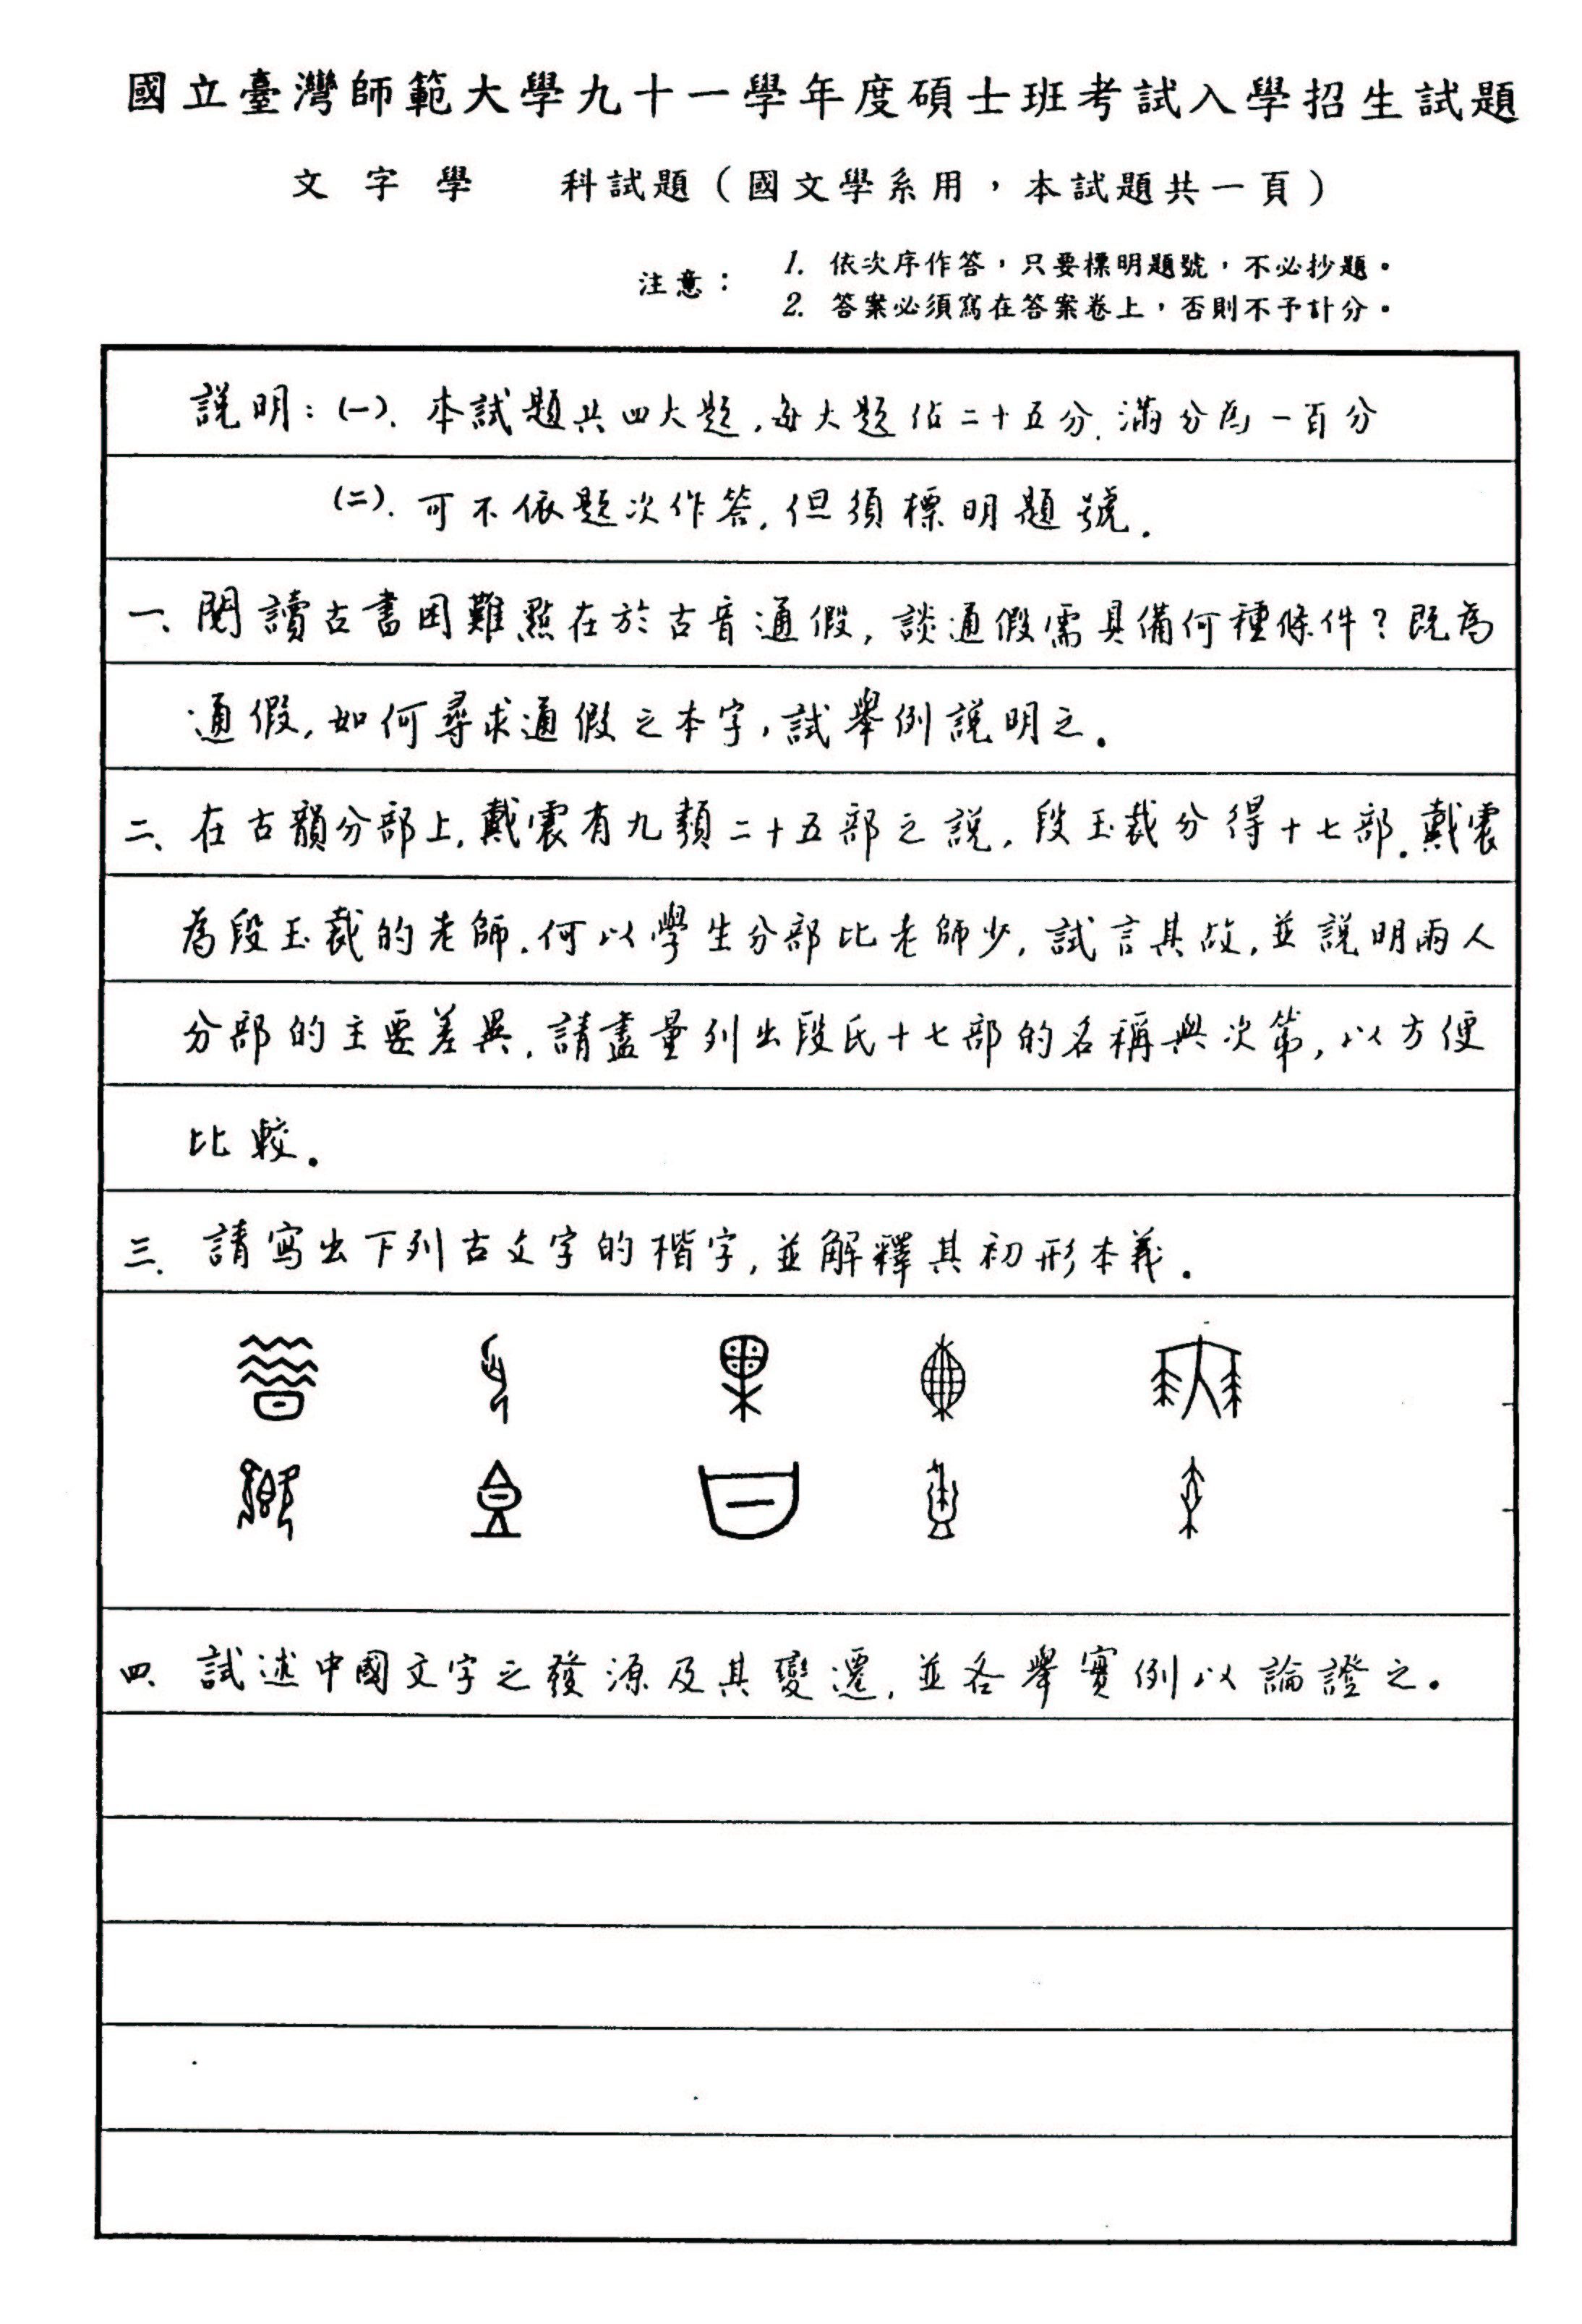 國立臺灣師範大學九十一學年度碩士班考試入學招生試題
文字學 科試題（國文學系用，本試題共一頁）
注意： 1. 依次序作答，只要標明題號，不必抄題。
2. 答案必須寫在答案卷上，否則不予計分。
說明：(一). 本試題共四大題，每大題佔二十五分，滿分為一百分
(二). 可不依題次作答，但須標明題號．
一、閱讀古書困難點在於古音通假，談通假需具備何種條件？既為
通假，如何尋求通假之本字，試舉例說明之．
二、在古韻分部上，戴震有九類二十五部之說，段玉裁分得十七部．戴震
為段玉裁的老師．何以學生分部比老師少，試言其故，並說明兩人
分部的主要差異．請盡量列出段氏十七部的名稱與次第，以方便
比較．
三．請寫出下列古文字的楷字，並解釋其初形本義．
四、試述中國文字之發源及其變遷，並各舉實例以論證之．